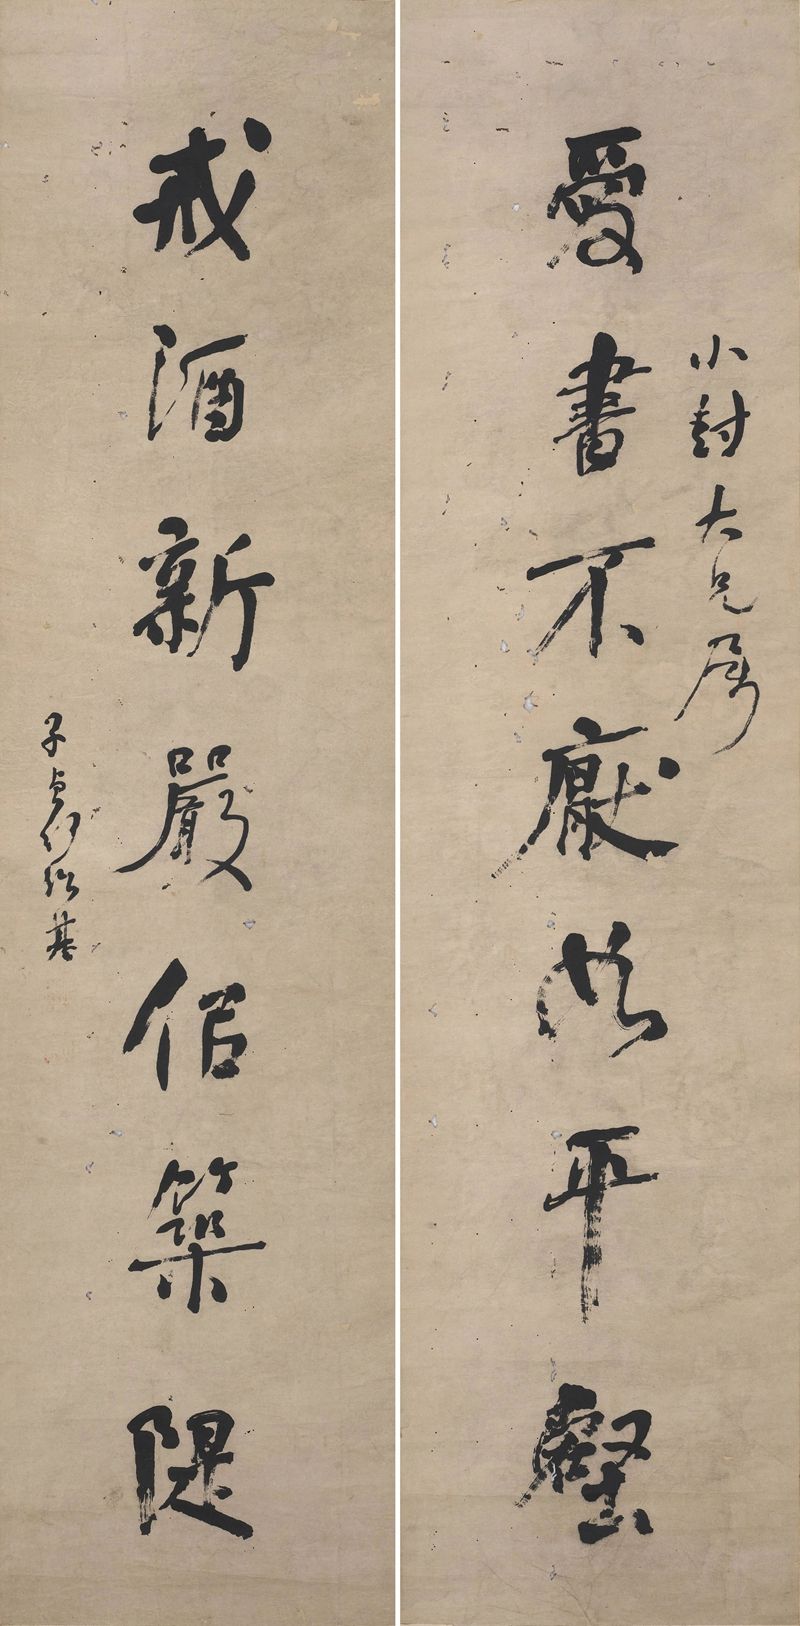 小封大兄屬
愛書不厭如平壑
戒酒新嚴佀築隄
子貞何紹基